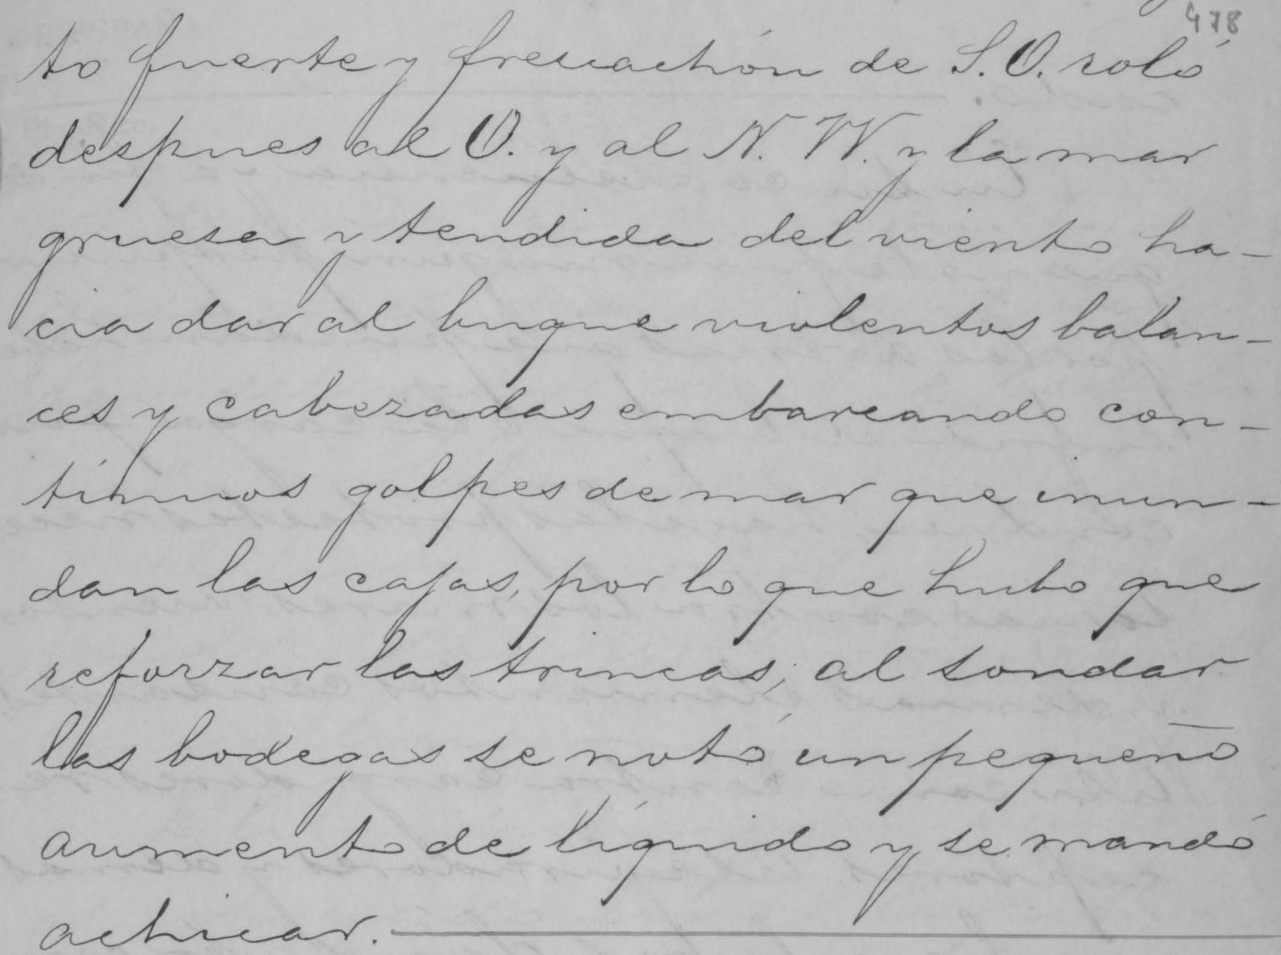 478
to fuerte y frescachón de S.O. roló
despues al O. y al N. W. y la mar
gruesa y tendida del viento ha-
cia dar al buque violentos balan-
ces y cabezadas embarcando con-
tinuos golpes de mar que inun-
dan las cajas, por lo que hubo que
reforzar las trincas; al sondar
las bodegas se notó un pequeño
aumento de líquido y se mandó
achicar.